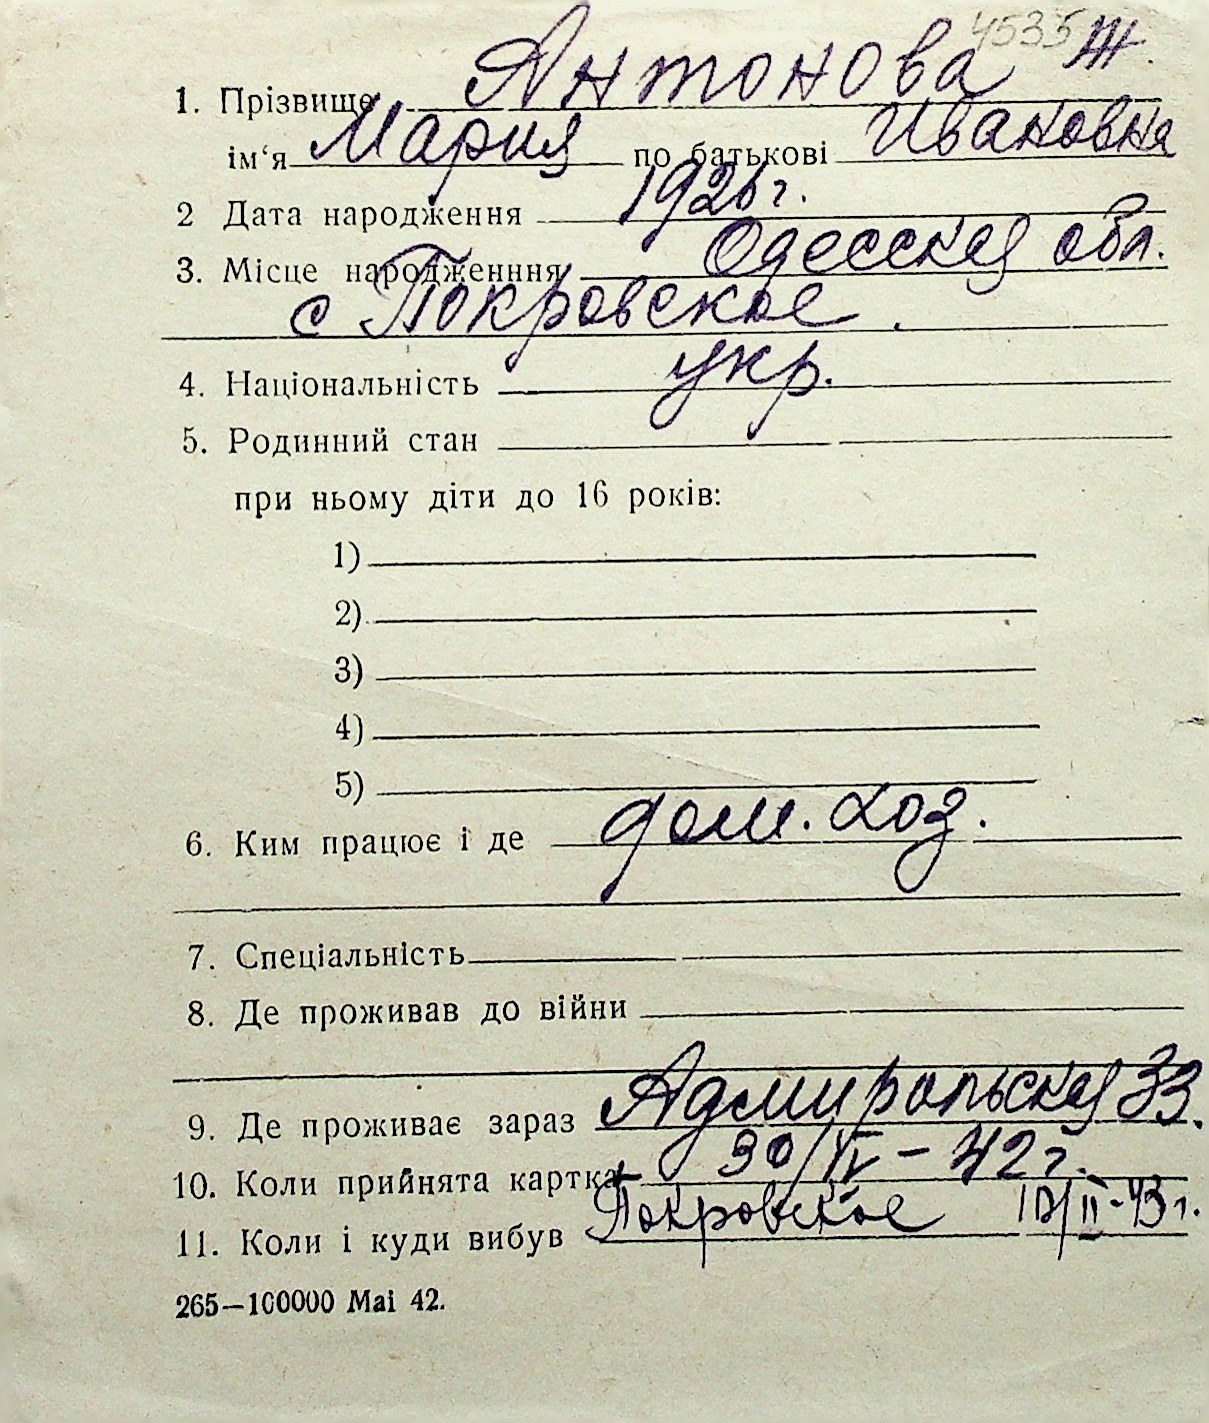 4535 Ж.
1. Прізвище Антонова
ім‘я Мария по батькові Ивановна
2 Дата народження 1926 г.
3. Місце народженння Одесская обл.
с Покровское.
4. Національність укр.
5. Родинний стан
при ньому діти до 16 років:
1)
2)
3)
4)
5)
6. Ким працює і де дом. хоз.
7. Спеціальність
8. Де проживав до війни
9. Де проживає зараз Адмиральская 33.
10. Коли прийнята картка 30/IV – 42 г.
11. Коли і куди вибув Покровское 10/II-43 г.
265—100000 Mai 42.